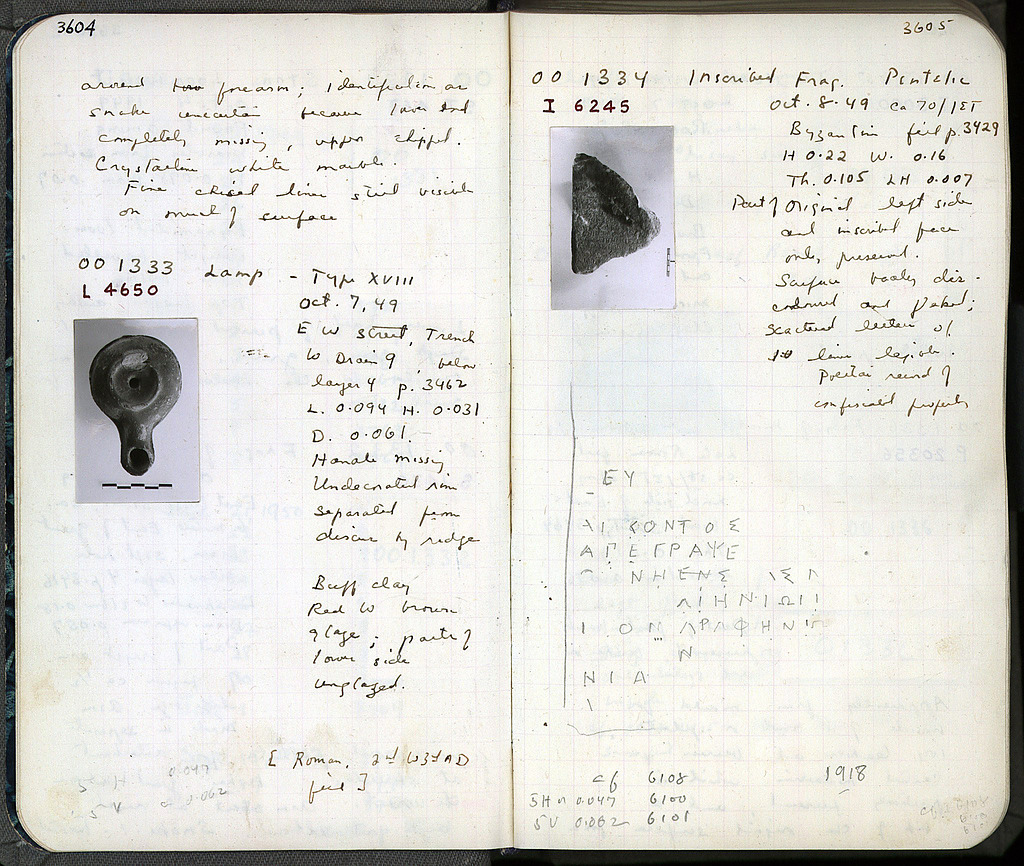 3604
around forearm; identification as
snake uncertain because lower end
completely missing, upper chipped.
Crystalline white marble.
Fine chisel lines still visible
on much of surface
OO 1333 Lamp - Type XVIII
L 4650
Oct. 7, 49
E W Street, Trench
W Drain 9, below
layer 4 p. 3462
L. 0.094 H. 0.031
D. 0.061.
Handle missing
Undecorated rim
separated from
discus by ridge
Buff clay
Red to brown
glaze; parts of
lower side
unglazed.
[ Roman, 2nd to 3rd AD
fill ]
0.047
5 V 0.062
3605
OO 1334 Inscribed Frag. Pentelic
I 6245
Oct. 8. 49 ca 70/ΙΣΤ
Byzantine fill p. 3429
H 0.22 W. 0.16
Th. 0.105 LH 0.007
Part of Original left side
and inscribed face
only preserved.
Surface badly dis-
coloured and flaked;
scattered letters of
lines legible.
Poletai record of
confiscated property
ΕΥ
ΚΟΝΤΟΣ
ΑΠΕΓΡΑΨΕ
ΝΗΕΝΣ ΙΣΛ
ΛΙΗΝΙΩΙΙ
Ι ΟΝ ΑΡΑΦΗΝΙ
Ν
ΝΙΑ
Ι
cf 6108
5H 0.047 6100
5V 0.062 6101
1918